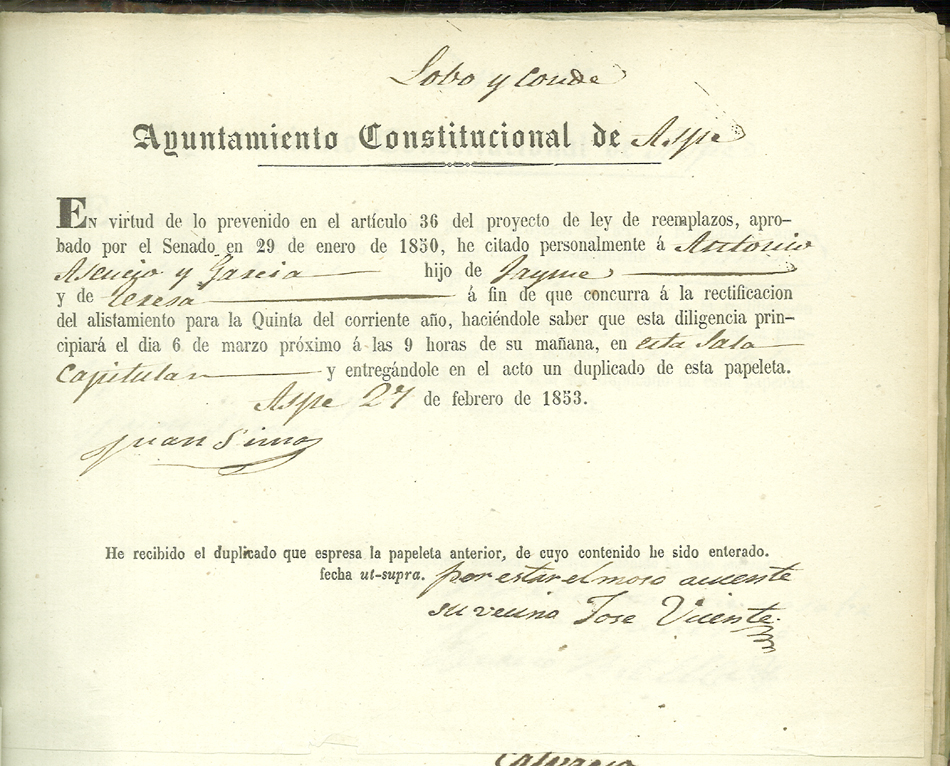 Lobo y Conde
Ayuntamiento Constitucional de Aspe
EN virtud de lo prevenido en el artículo 36 del proyecto de ley de reemplazos, apro-
bado por el Senado en 29 de enero de 1850, he citado personalmente á Antonio
Asencio y Garcia hijo de Jayme
y de Teresa á fin de que concurra á la rectificacion
del alistamiento para la Quinta del corriente año, haciéndole saber que esta diligencia prin-
cipiará el dia 6 de marzo próximo á las 9 horas de su mañana, en esta Sala
Capitular y entregándole en el acto un duplicado de esta papeleta.
Aspe 27 de febrero de 1853.
Juan Simo
He recibido el duplicado que espresa la papeleta anterior, de cuyo contenido he sido enterado.
fecha ut-supra. por estar el moso ausente
su vecino Jose Vicente